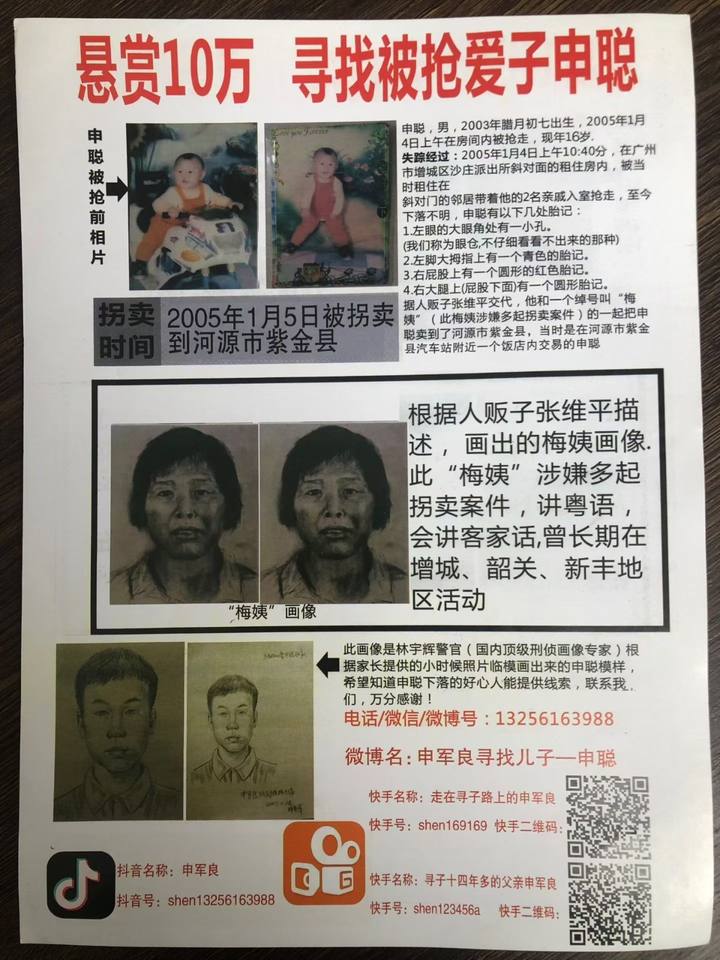 悬赏10万 寻找被抢爱子申聪
申聪被抢前相片
Love you Forever
申聪，男，2003年腊月初七出生，2005年1月
4日上午在房间内被抢走，现年16岁.
失踪经过：2005年1月4日上午10:40分，在广州
市增城区沙庄派出所斜对面的租住房内，被当
时租住在
斜对门的邻居带着他的2名亲戚入室抢走，至今
下落不明，申聪有以下几处胎记：
1.左眼的大眼角处有一小孔。
(我们称为眼仓,不仔细看看不出来的那种)
2.左脚大拇指上有一个青色的胎记。
3.右屁股上有一个圆形的红色胎记。
4.右大腿上(屁股下面)有一个圆形胎记。
据人贩子张维平交代，他和一个绰号叫“梅
姨”（此梅姨涉嫌多起拐卖案件）的一起把申
聪卖到了河源市紫金县，当时是在河源市紫金
县汽车站附近一个饭店内交易的申聪
拐卖
时间
2005年1月5日被拐卖
到河源市紫金县
根据人贩子张维平描
述，画出的梅姨画像.
此“梅姨”涉嫌多起
拐卖案件，讲粤语，
会讲客家话,曾长期在
增城、韶关、新丰地
区活动
“梅姨”画像
此画像是林宇辉警官（国内顶级刑侦画像专家）根
据家长提供的小时候照片临模画出来的申聪模样，
希望知道申聪下落的好心人能提供线索，联系我
们，万分感谢！
电话/微信/微博号：13256163988
微博名: 申军良寻找儿子—申聪
快手名称：走在寻子路上的申军良
快手号：shen169169 快手二维码:
抖音名称：申军良
抖音号：shen13256163988
快手名称：寻子十四年多的父亲申军良
快手号：shen123456a 快手二维码: